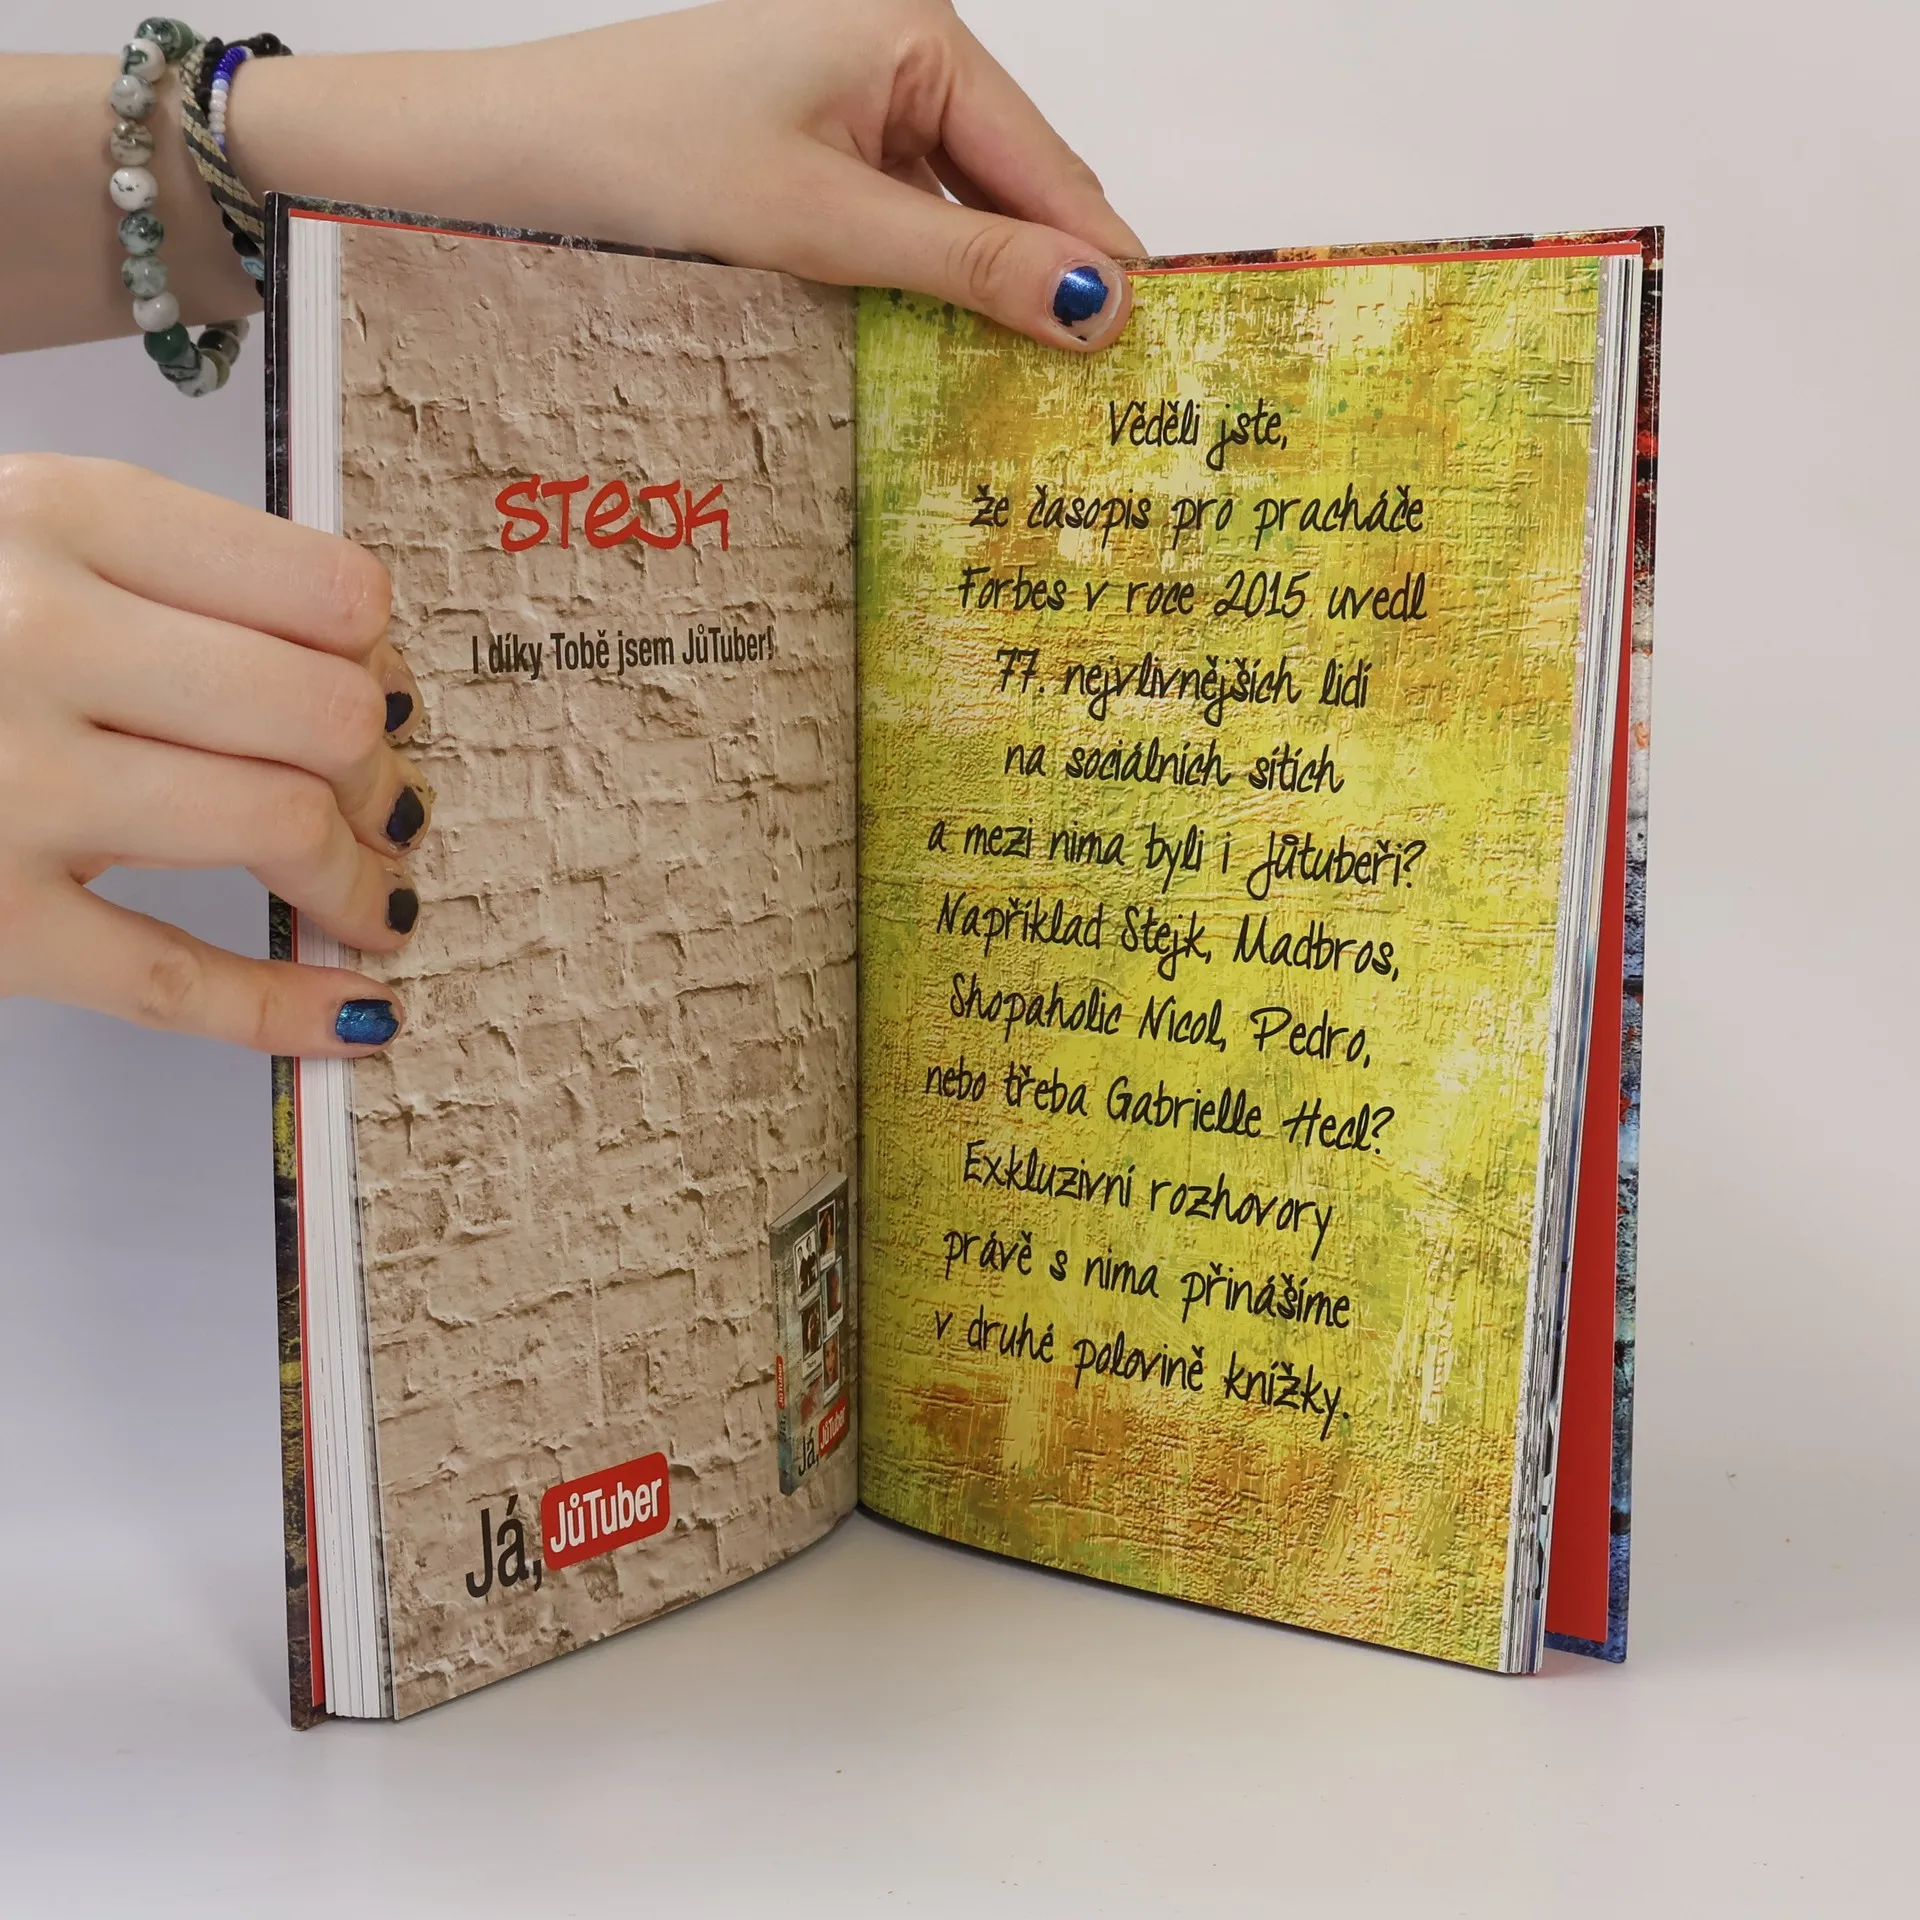 STEJK
I díky Tobě jsem JůTuber!
Já, JůTuber
JůTuber
Já, JůTuber
Věděli jste,
že časopis pro pracháče
Forbes v roce 2015 uvedl
77. nejvlivnějších lidí
na sociálních sítích
a mezi nima byli i Jůtubeři?
Například Stejk, Madbros,
Shopaholic Nicol, Pedro,
nebo třeba Gabrielle Hecl?
Exkluzivní rozhovory
právě s nima přinášíme
v druhé polovině knížky.